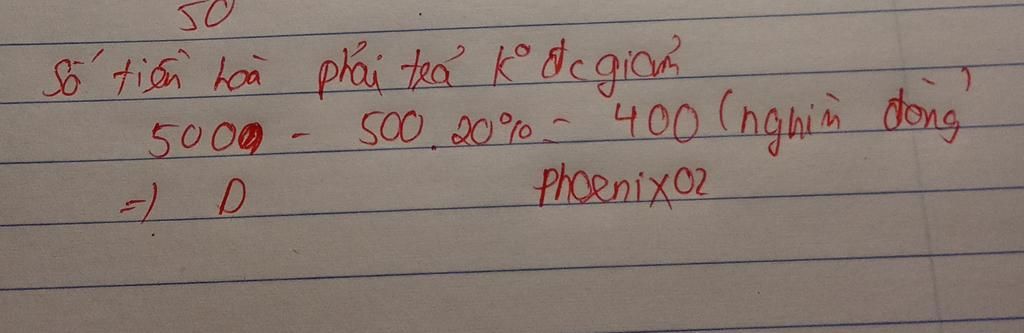 50
Số tiền hoà phải trả k° đc giảm
500 - 500.20% = 400 (nghìn đồng)
=) D
Phoenix02